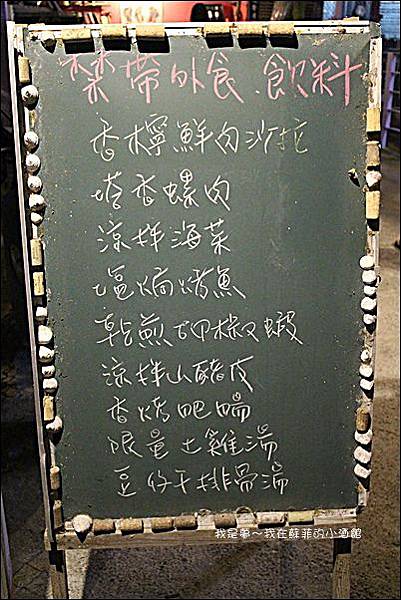 禁帶外食、飲料
香檸鮮肉沙拉
塔香螺肉
涼拌海菜
塩焗烤魚
乾煎胡椒蝦
涼拌山豬皮
香烤肥腸
限量土雞湯
豆仔干排骨湯
我是弟～我在蘇菲的小酒館